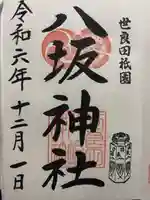 世良田祇園
八坂神社
令和六年十二月一日